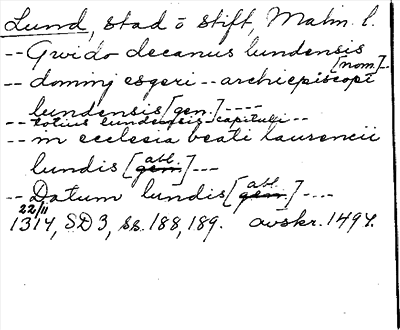 Lund, stad o stift, Malm. l.
-- Gwido decanus lundensis
[nom.]--
-- dominj esgeri -- archiepiscopi
lundensis [gen.] ----
-- totius lundensis capituli --
-- in ecclesia beati laurencii
lundis [gen. abl.] ---
-- Datum lundis [gen. abl.] ----
22/11
1314, SD 3, ss. 188, 189. avskr. 1494.